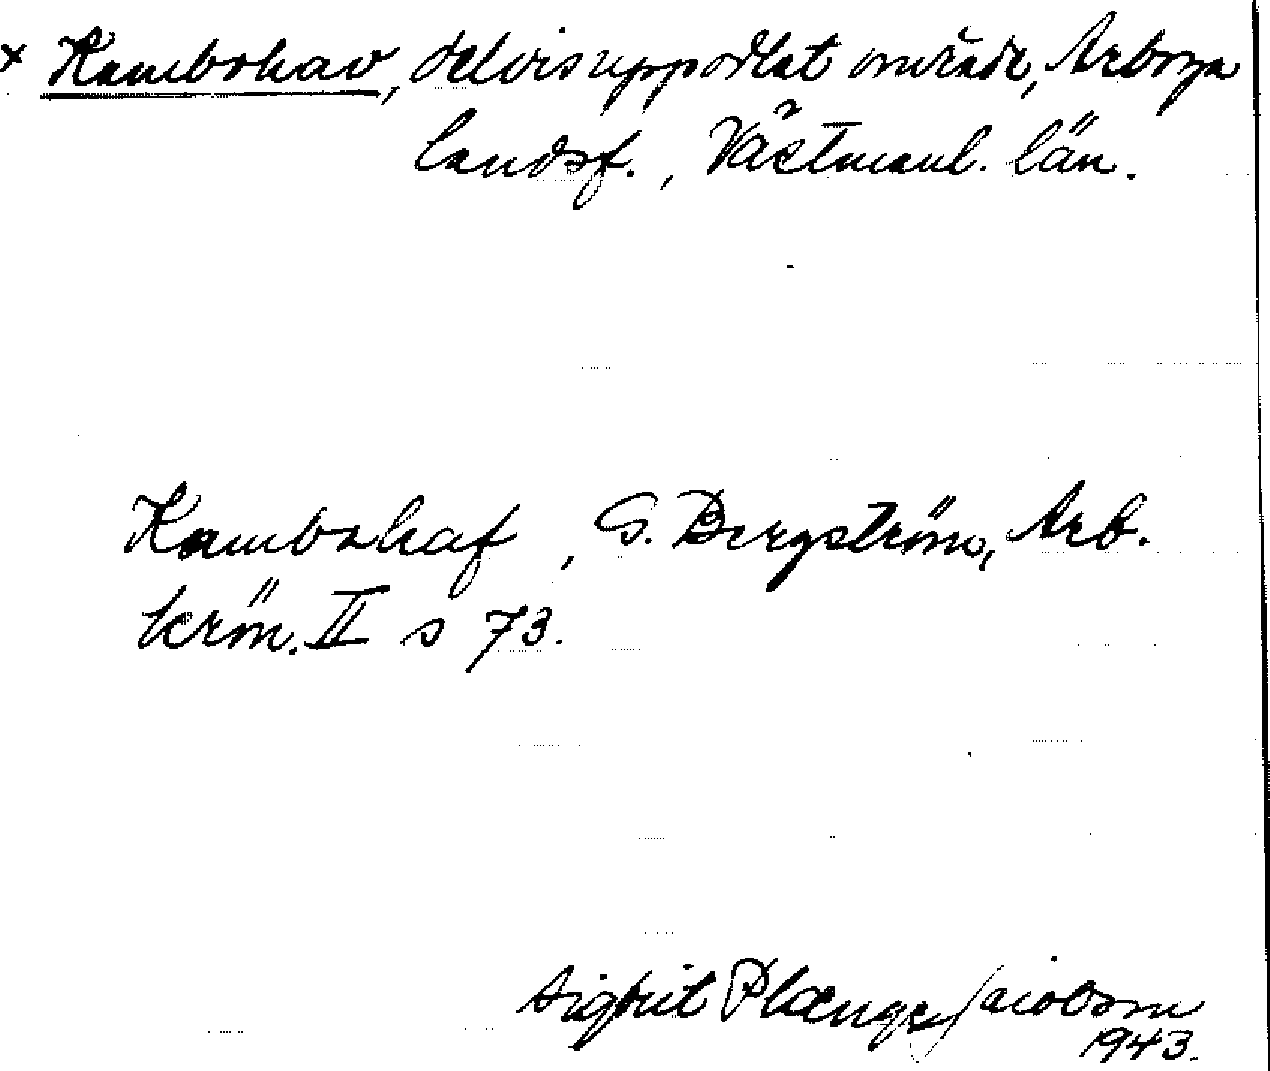 × Kambohav, delvis uppodlat område, Arboga
landsf., Västmanl. län.
Kambohaf, G. Bergström, Arb.
krön. II s 73.
Sigfrit Plænge Jacobson
1943.